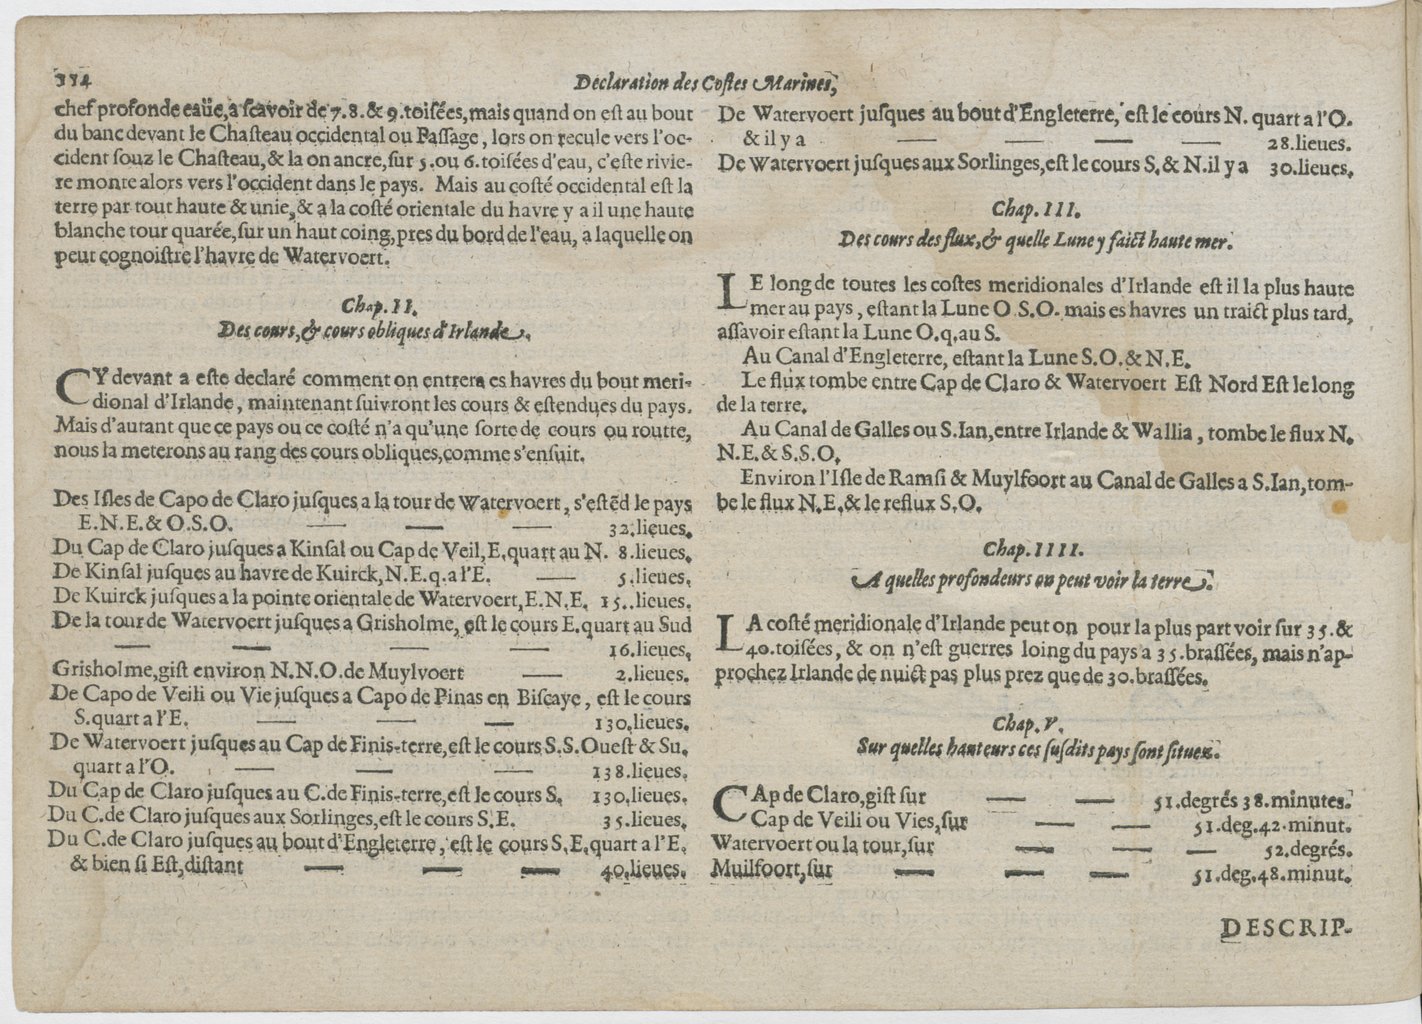 334
Declaration des Costes Marines,
chef profonde eaüe, a sçavoir de 7. 8. & 9. toisées, mais quand on est au bout
du banc devant le Chasteau occidental ou Passage, lors on recule vers l'oc-
cident souz le Chasteau, & la on ancre, sur 5. ou 6. toisées d'eau, c'este rivie-
re monte alors vers l'occident dans le pays. Mais au costé occidental est la
terre par tout haute & unie, & a la costé orientale du havre y a il une haute
blanche tour quarée, sur un haut coing, pres du bord de l'eau, a laquelle on
peut cognoistre l'havre de Watervoert.
Chap. II.
Des cours, & cours obliques d'Irlande.
CY devant a este declaré comment on entrera es havres du bout meri-
dional d'Irlande, maintenant suivront les cours & estendues du pays.
Mais d'autant que ce pays ou ce costé n'a qu'une sorte de cours ou routte,
nous la meterons au rang des cours obliques, comme s'ensuit.
Des Isles de Capo de Claro jusques a la tour de Watervoert, s'estẽd le pays
E. N. E. & O. S. O. — — — 32. lieues.
Du Cap de Claro jusques a Kinsal ou Cap de Veil, E. quart au N. 8. lieues.
De Kinsal jusques au havre de Kuirck, N. E. q. a l'E. — 5. lieues.
De Kuirck jusques a la pointe orientale de Watervoert, E. N. E. 15.. lieues.
De la tour de Watervoert jusques a Grisholme, est le cours E. quart au Sud
— — — — 16. lieues.
Grisholme, gist environ N. N. O. de Muylvoert — 2. lieues.
De Capo de Veili ou Vie jusques a Capo de Pinas en Biscaye, est le cours
S. quart a l'E. — — — 130. lieues.
De Watervoert jusques au Cap de Finis-terre, est le cours S. S. Ouest & Su.
quart a l'O. — — — 138. lieues.
Du Cap de Claro jusques au C. de Finis-terre, est le cours S. 130. lieues.
Du C. de Claro jusques aux Sorlinges, est le cours S. E. 35. lieues.
Du C. de Claro jusques au bout d'Engleterre, est le cours S. E. quart a l'E.
& bien si Est, distant — — — 40. lieues.
De Watervoert jusques au bout d'Engleterre, est le cours N. quart a l'O.
& il y a — — — — 28. lieues.
De Watervoert jusques aux Sorlinges, est le cours S. & N. il y a 30. lieues.
Chap. III.
Des cours des flux, & quelle Lune y faict haute mer.
LE long de toutes les costes meridionales d'Irlande est il la plus haute
mer au pays, estant la Lune O S. O. mais es havres un traict plus tard,
assavoir estant la Lune O. q. au S.
Au Canal d'Engleterre, estant la Lune S. O. & N. E.
Le flux tombe entre Cap de Claro & Watervoert Est Nord Est le long
de la terre.
Au Canal de Galles ou S. Ian, entre Irlande & Wallia, tombe le flux N.
N. E. & S. S. O.
Environ l'Isle de Ramsi & Muylfoort au Canal de Galles a S. Ian, tom-
be le flux N. E. & le reflux S. O.
Chap. IIII.
A quelles profondeurs on peut voir la terre.
LA costé meridionale d'Irlande peut on pour la plus part voir sur 35. &
40. toisées, & on n'est guerres loing du pays a 35. brassées, mais n'ap-
prochez Irlande de nuict pas plus prez que de 30. brassées.
Chap. V.
Sur quelles hauteurs ces susdits pays sont situez.
CAp de Claro, gist sur — — 51. degrés 38. minutes.
Cap de Veili ou Vies, sur — — 51. deg. 42. minut.
Watervoert ou la tour, sur — — — 52. degrés.
Muilfoort, sur — — — 51. deg. 48. minut.
DESCRIP-